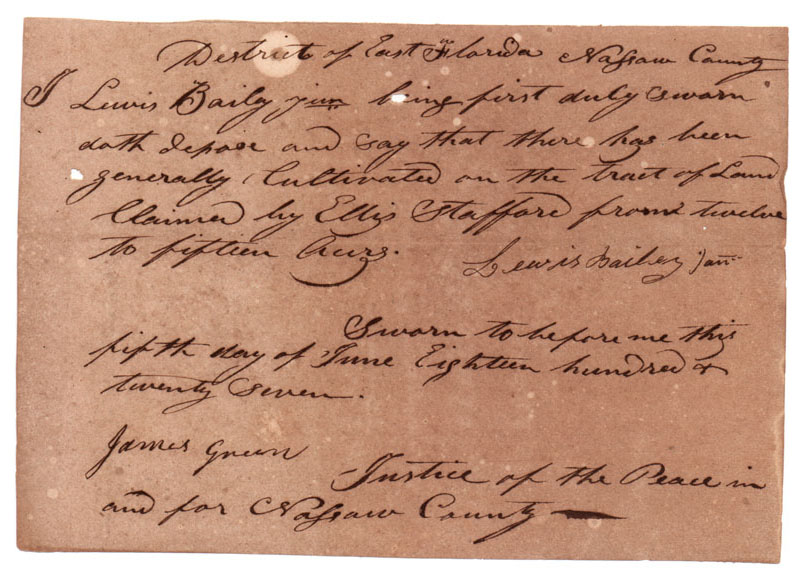 District of East Florida Nassaw County
I Lewis Baily jun being first duly sworn
doth depose and say that there has been
generally Cultivated on the tract of Land
Claimed by Ellis Stafford from twelve
to fifteen Acres.
Lewis Bailey Jun
Sworn to before me this
fifth day of June Eighteen hundred &
twenty Seven.
James Green
Justice of the Peace in
and for Nassaw County